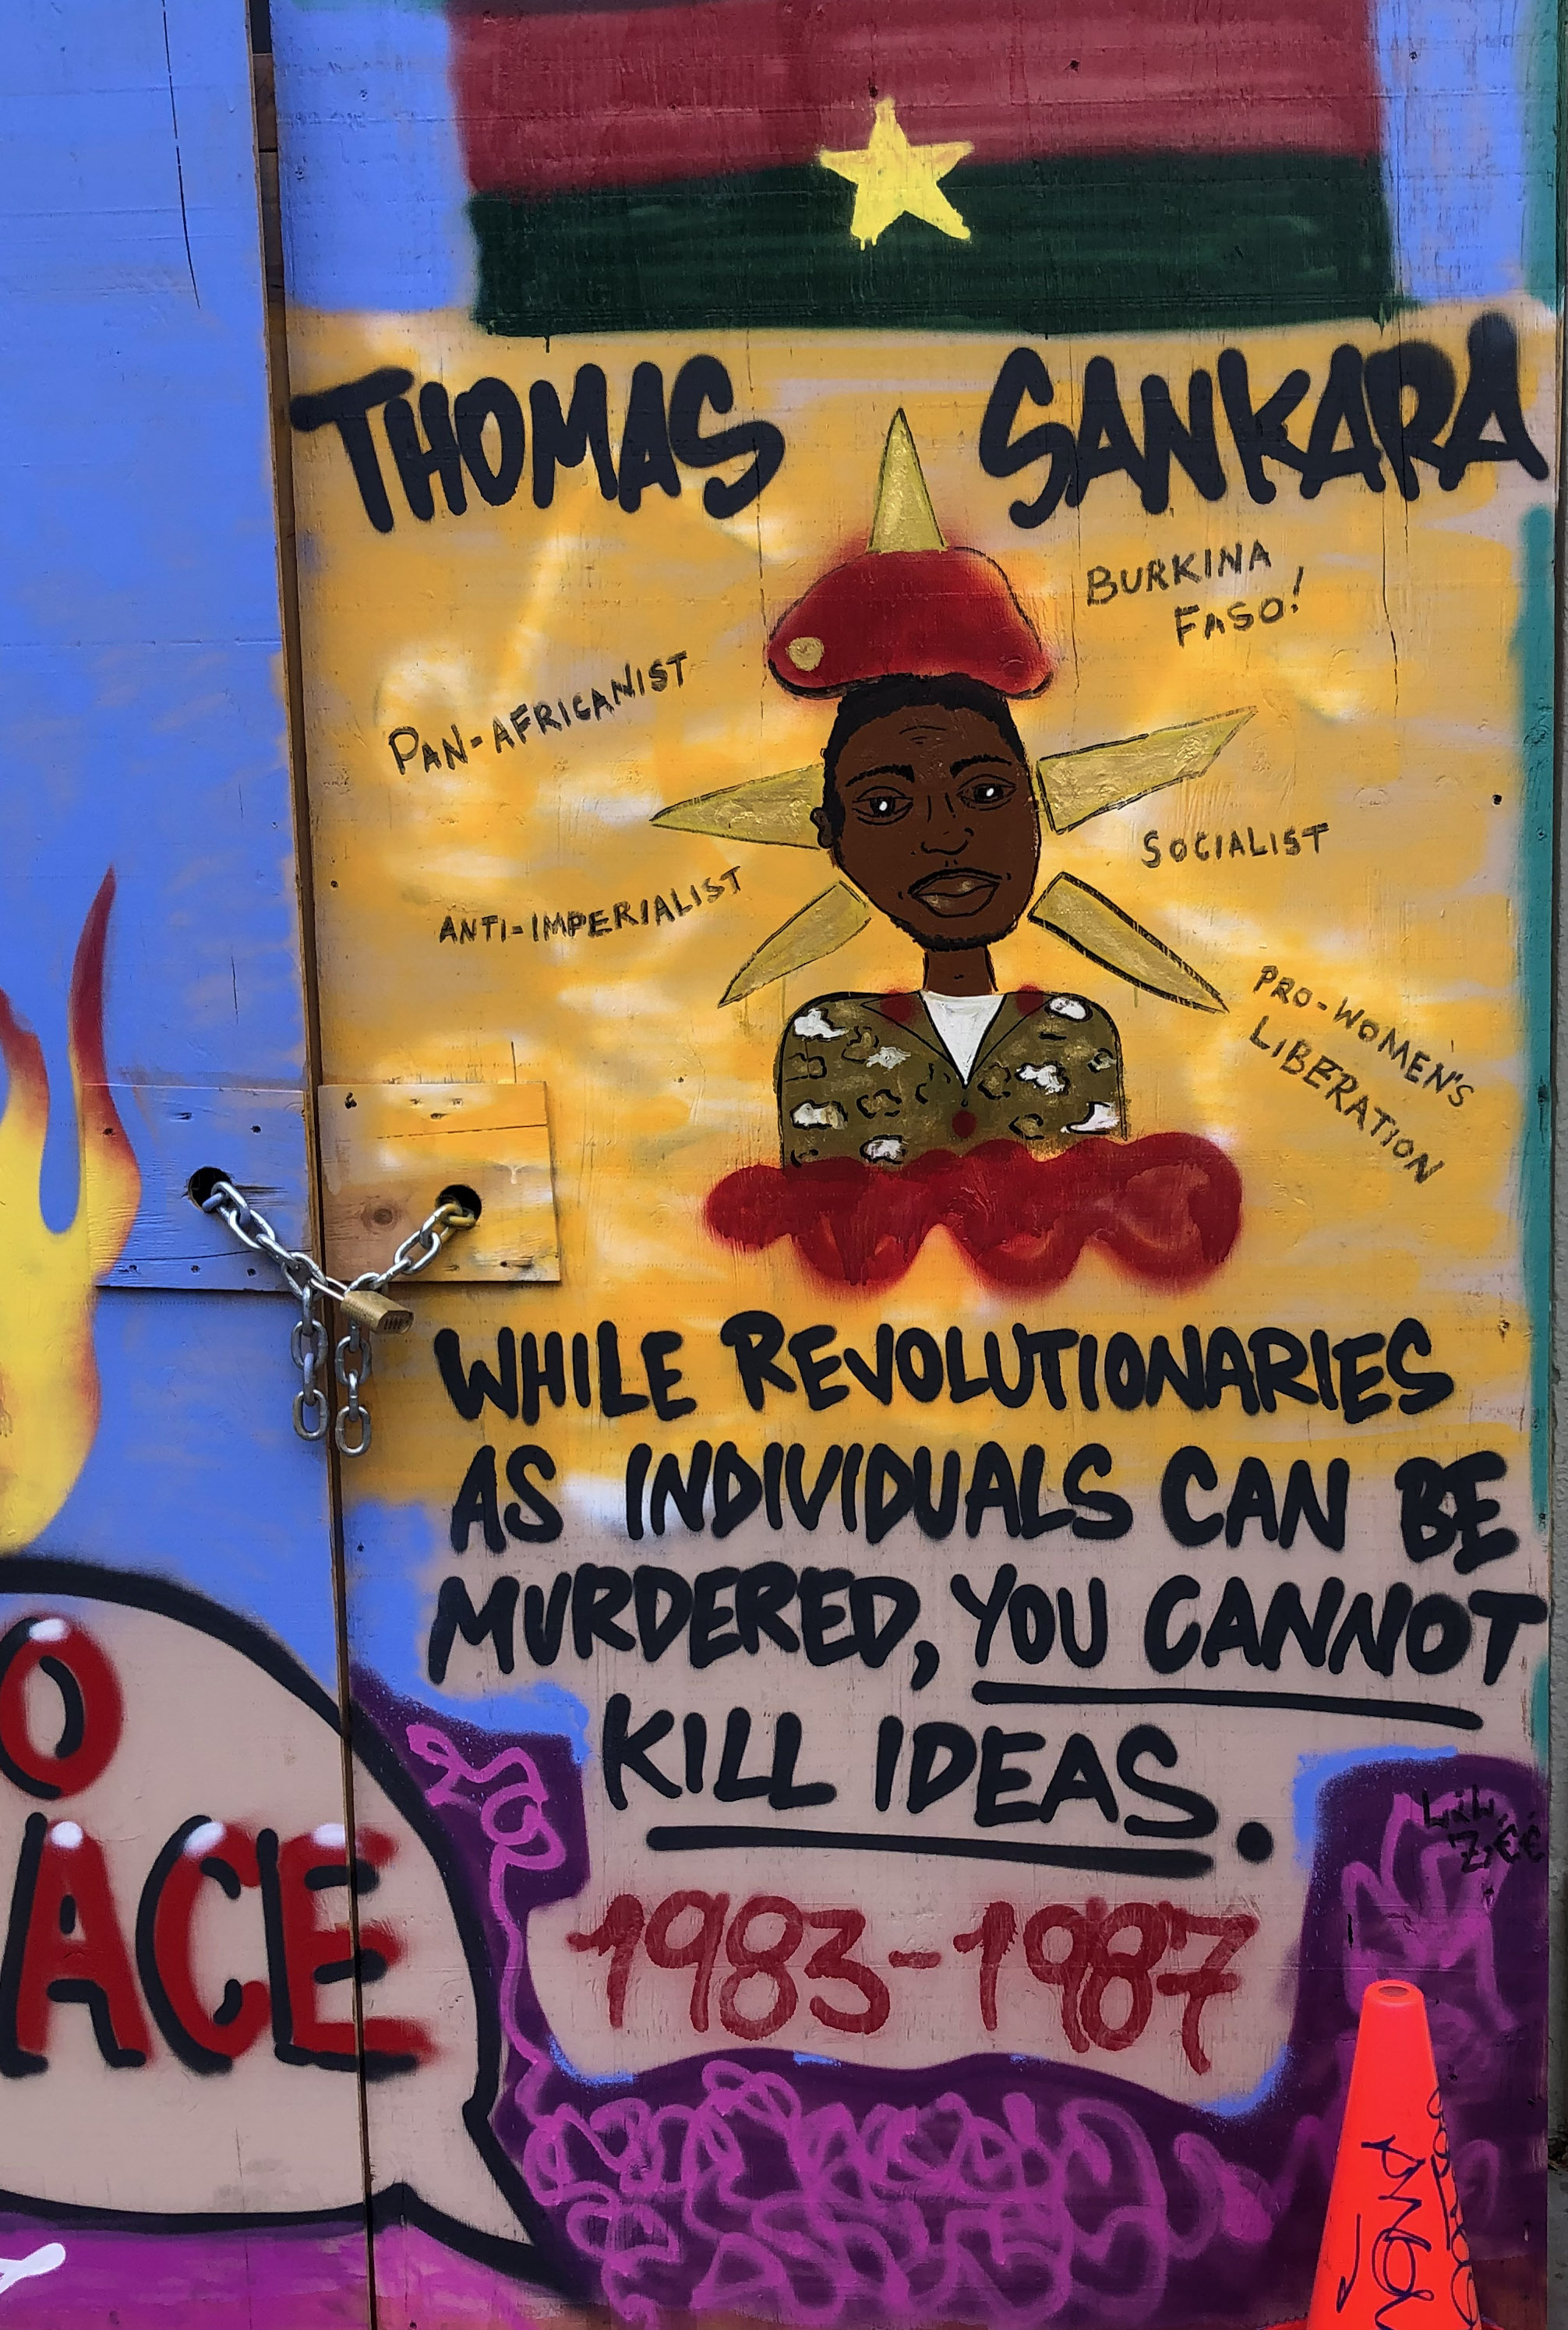 THOMAS SANKARA
BURKINA
FASO!
PAN-AFRICANIST
SOCIALIST
ANTI-IMPERIALIST
PRO-WOMEN'S
LIBERATION
WHILE REVOLUTIONARIES
AS INDIVIDUALS CAN BE
MURDERED, YOU CANNOT
KILL IDEAS.
1983-1987
O
ACE